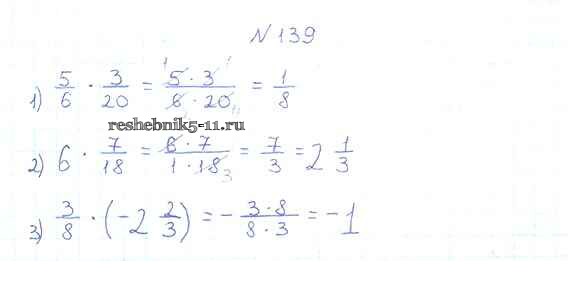 №139
1) 5/6 · 3/20 = 5·3/6·20 = 1/8
reshebnik5-11.ru
2) 6 · 7/18 = 6·7/1·18 3 = 7/3 = 2 1/3
3) 3/8 · (-2 2/3) = - 3·8/8·3 = -1